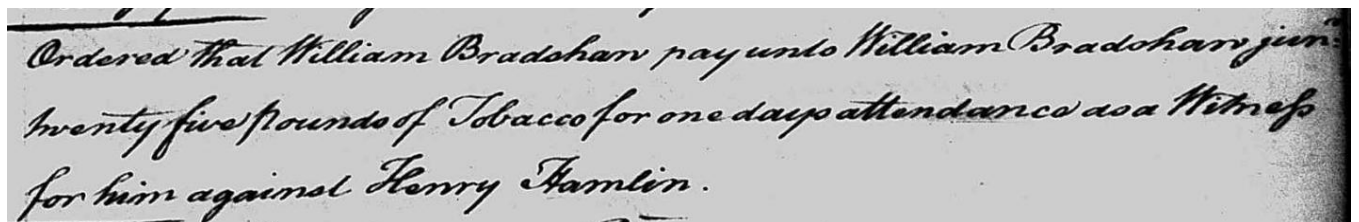 Ordered that William Bradshaw pay unto William Bradshaw junr.
twenty five pounds of Tobacco for one days attendance as a Witness
for him against Henry Hamlin.